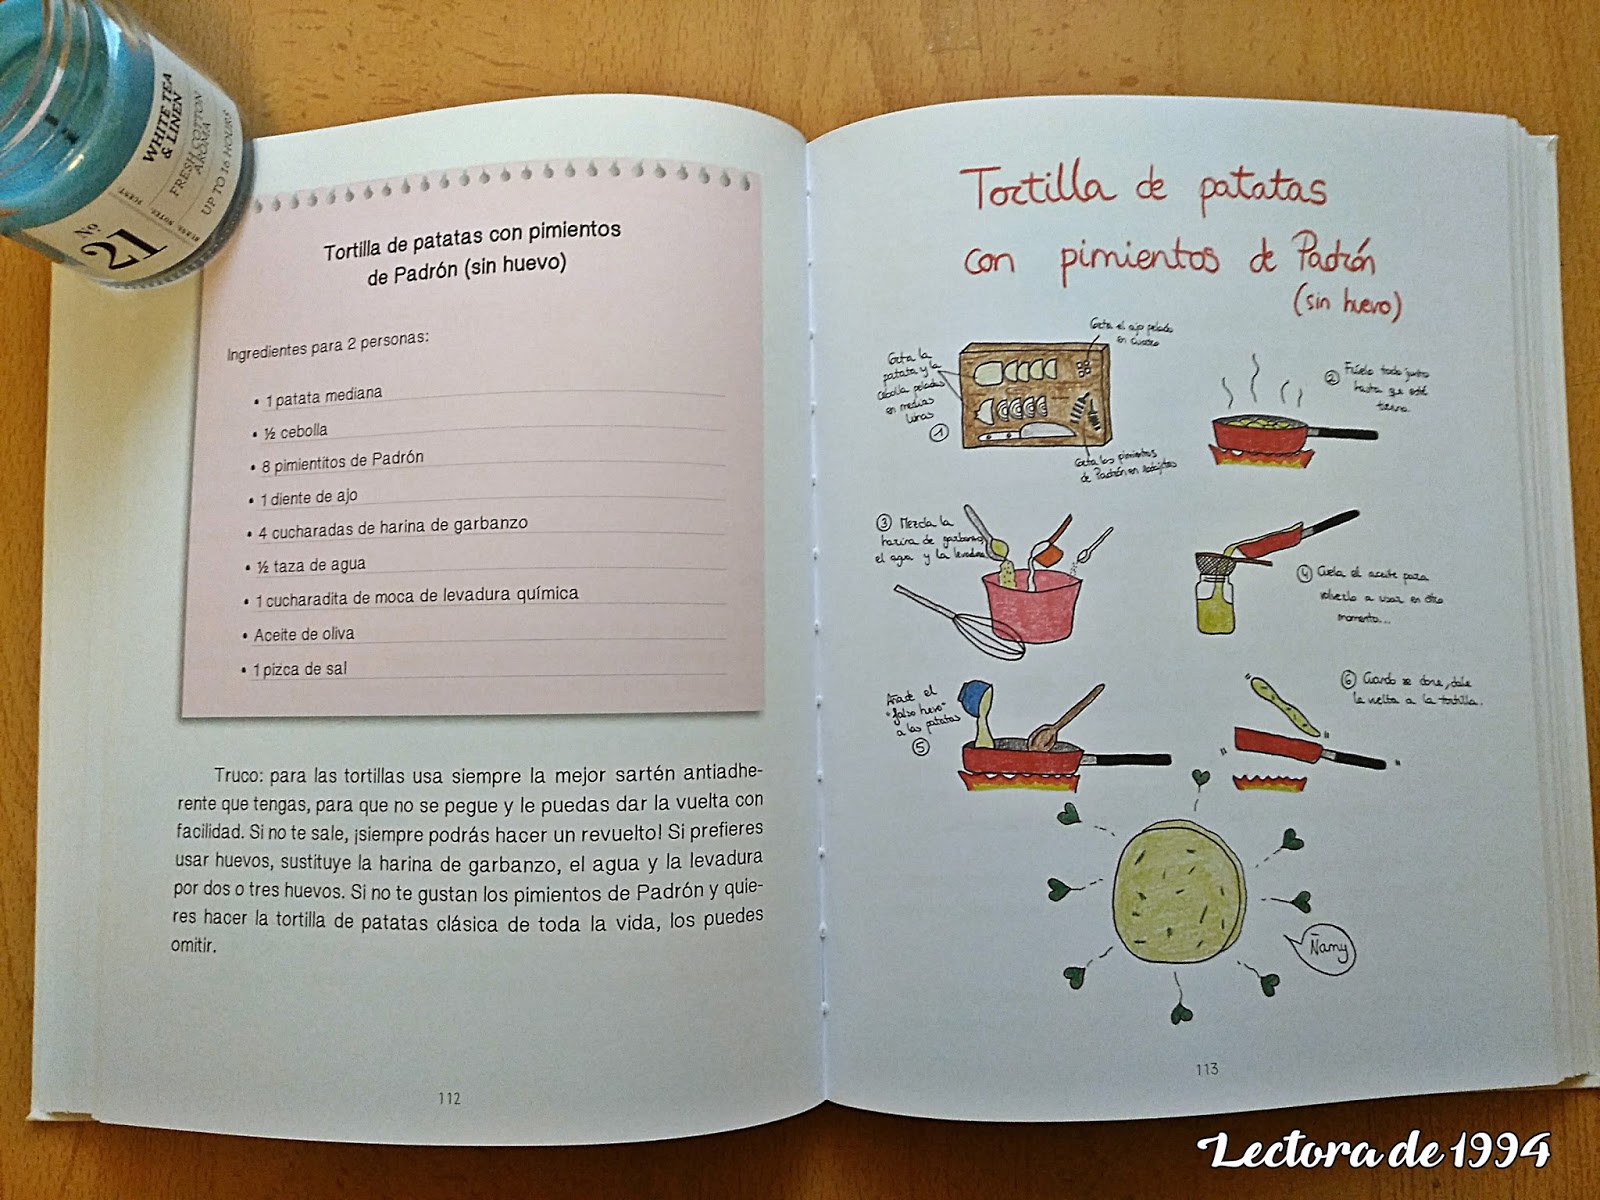 WHITE TEA
& LINEN
FRESH COTTON
AROMA
UP TO 16 HOURS
Nº
21
Tortilla de patatas con pimientos
de Padrón (sin huevo)
Ingredientes para 2 personas:
• 1 patata mediana
• ½ cebolla
• 8 pimientitos de Padrón
• 1 diente de ajo
• 4 cucharadas de harina de garbanzo
• ½ taza de agua
• 1 cucharadita de moca de levadura química
• Aceite de oliva
• 1 pizca de sal
Truco: para las tortillas usa siempre la mejor sartén antiadhe-
rente que tengas, para que no se pegue y le puedas dar la vuelta con
facilidad. Si no te sale, ¡siempre podrás hacer un revuelto! Si prefieres
usar huevos, sustituye la harina de garbanzo, el agua y la levadura
por dos o tres huevos. Si no te gustan los pimientos de Padrón y quie-
res hacer la tortilla de patatas clásica de toda la vida, los puedes
omitir.
112
Tortilla de patatas
con pimientos de Padrón
(sin huevo)
Corta el ajo pelado
en cuatro
Corta la
patata y la
cebolla peladas
en medias
lunas
1
Corta los pimientos
de Padrón en rodajitas
2 Fríelo todo junto
hasta que esté
tierno.
3 Mezcla la
harina de garbanzo,
el agua y la levadura
4 Cuela el aceite para
volverlo a usar en otro
momento...
Añade el
"falso huevo"
a las patatas
5
6 Cuando se dore, dale
la vuelta a la tortilla.
Ñamy
113
Lectora de 1994